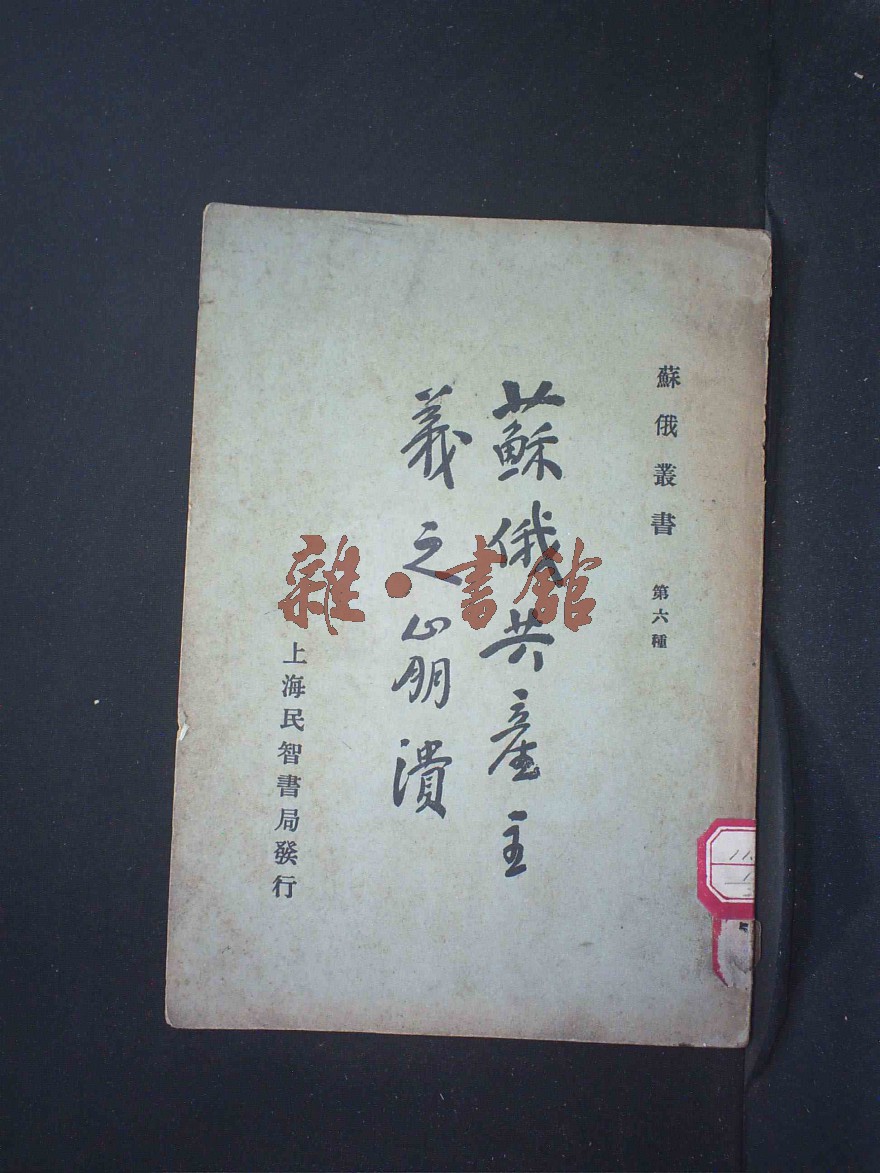 蘇俄叢書 第六種
蘇俄共產主
義之崩潰
上海民智書局發行
雜·書館